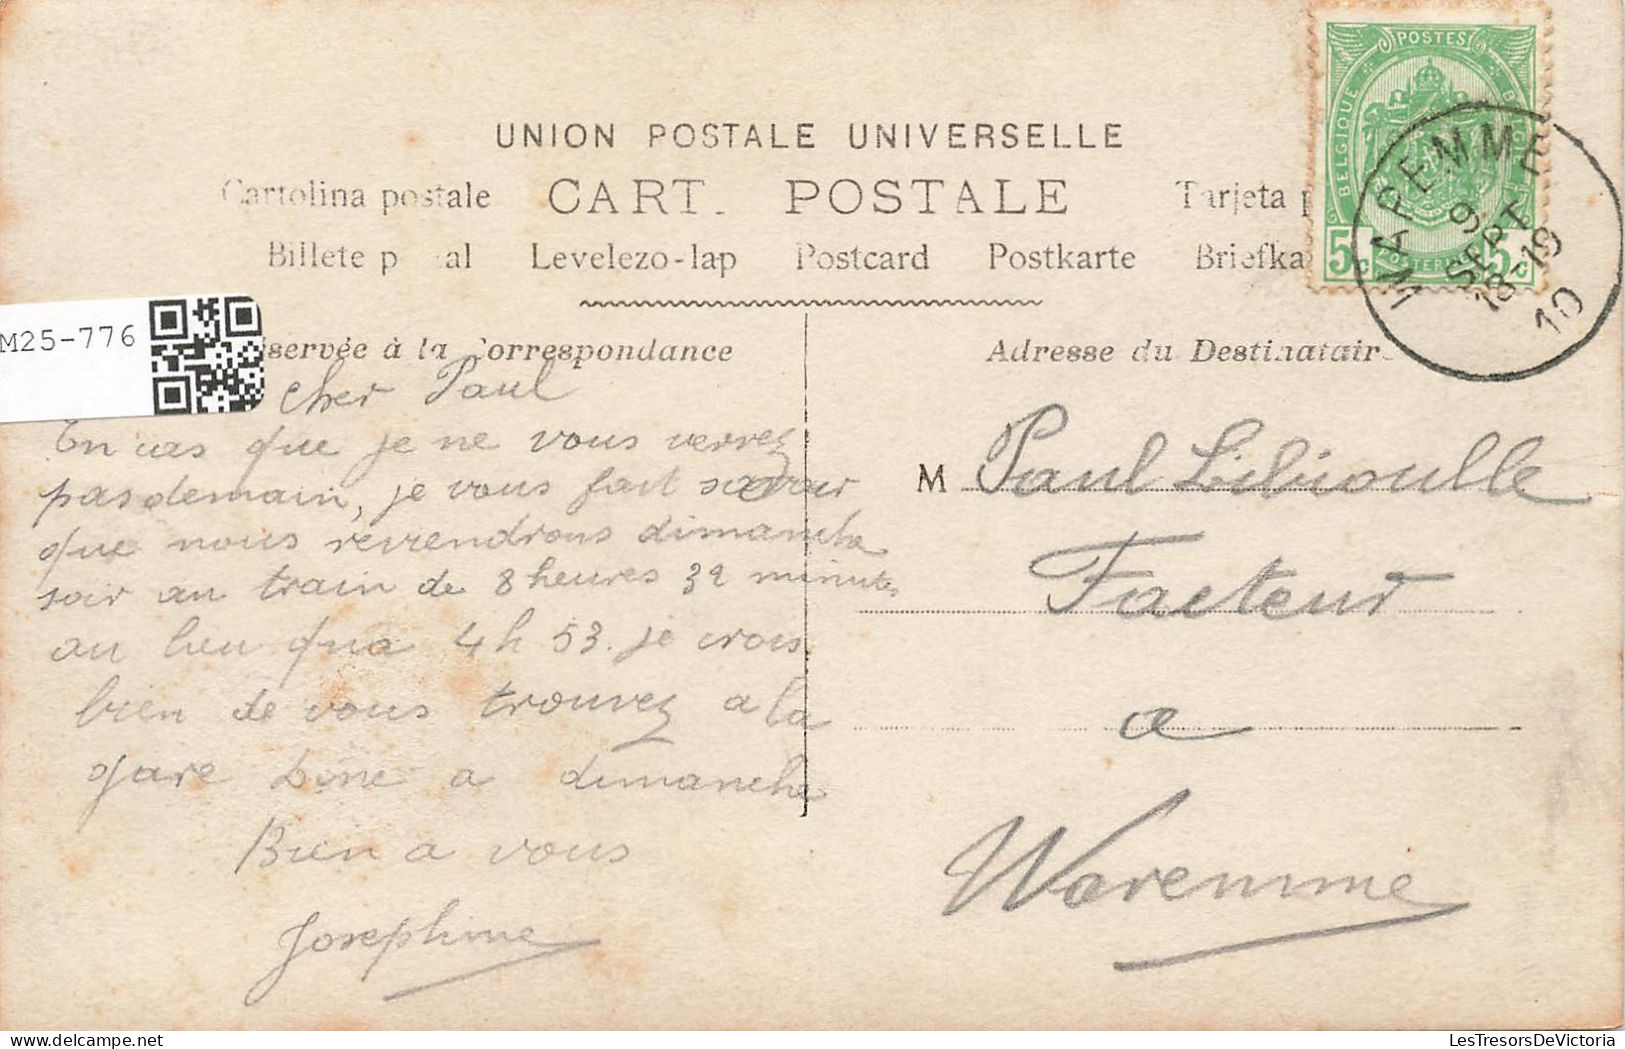 UNION POSTALE UNIVERSELLE
Cartolina postale CART. POSTALE Tarjeta p
Billete p al Levelezo-lap Postcard Postkarte Briefka
POSTES
BELGIQUE BELGIË
5c 5c
WAREMME
9
SEPT
18-19
10
M25-776
servée à la Correspondance
Adresse du Destinatair
cher Paul
En cas que je ne vous verrez
pas demain, je vous fait savoir
que nous reviendrons dimanche
soir au train de 8 heures 32 minutes
au lieu qua 4 h 53. je crois
bien de vous trouvez a la
gare Donc a dimanche
Bien a vous
Josephine
M Paul
Facteur
a
Waremme
LesTresorsDeVictoria.com